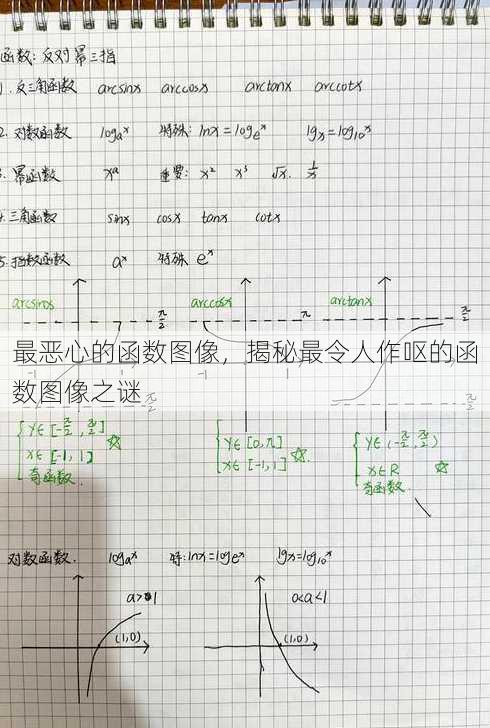 函数: 反对幂三指
1. 反三角函数 arcsinx arccosx arctanx arccotx
2. 对数函数 logₐx 特殊: lnx=logₑx lgx=log₁₀x
3. 幂函数 xᵃ 重要: x² x³ √x. 1/x
4. 三角函数 sinx cosx tanx cotx
5. 指数函数 aˣ 特殊 eˣ
arccosx arctanx
π/2 π π/2
最恶心的函数图像，揭秘最令人作呕的函
数图像之谜
-1 -1 1
y∈[-π/2, π/2] ☆ y∈[0,π] ☆ y∈(-π/2, π/2)
x∈[-1,1] x∈[-1,1] x∈R ☆
奇函数. 奇函数.
对数函数. logₐx 特: lnx=logₑx lgx=log₁₀x
a>1 0<a<1
(1,0) (1,0)